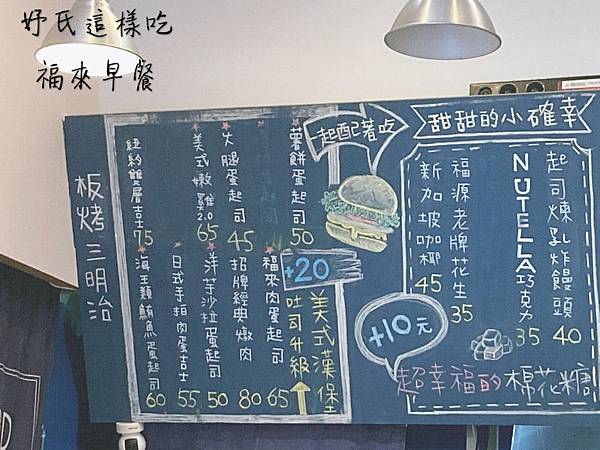 妤氏這樣吃
福來早餐
板烤三明治
紐約雙層吉士 75
美式嫩雞2.0 65
火腿蛋起司 45
薯餅蛋起司 50
海王類鮪魚蛋起司 60
日式手拍肉蛋吉士 55
洋芋沙拉蛋起司 50
招牌經典燉肉 80
福來肉蛋起司 65
起配著吃
+20
吐司升級
美式漢堡
甜甜的小確幸
新加坡咖椰 45
福源老牌花生 35
NUTELLA巧克力 35
起司煉乳炸饅頭 40
+10元
超幸福的棉花糖